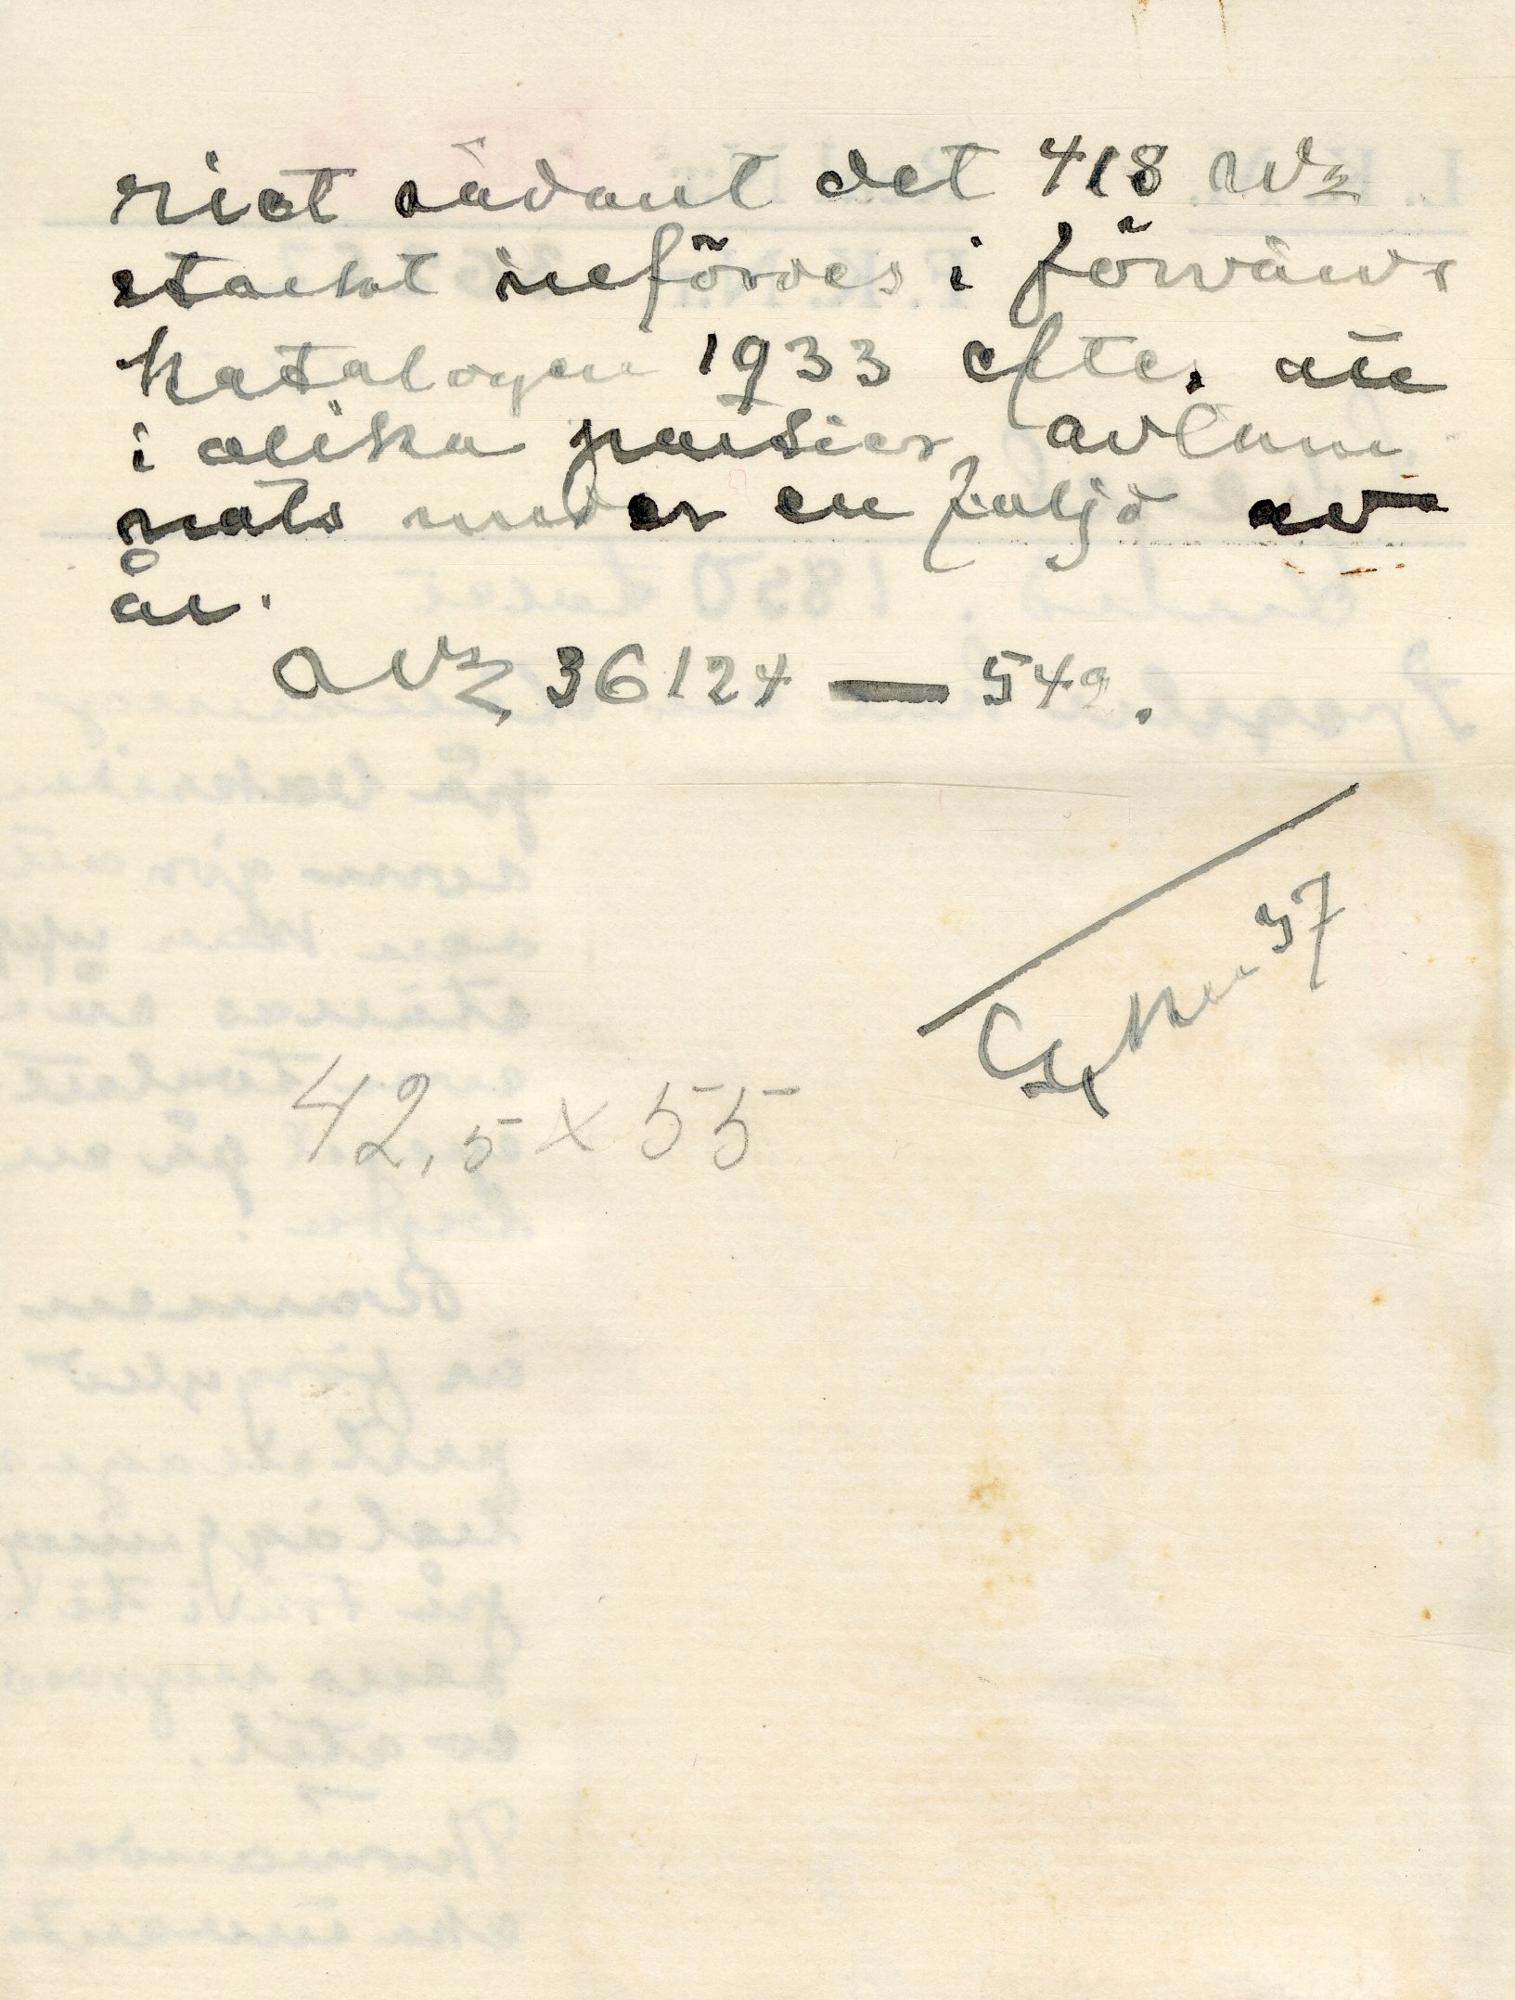 riet sådant det 418 Nr
starkt infördes i förvärvs
katalogen 1933 efter att
i olika partier avläm
nats under en följd av
år.
Nr 36124 — 549.
37
42,5 x 55